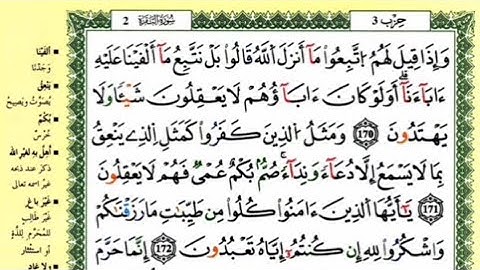 حزب 3
سُورَةُ البَقَرَة
2
وَإِذَا قِيلَ لَهُمُ اُ۪تَّبِعُواْ مَآ أَنزَلَ اَ۬للَّهُ قَالُواْ بَلْ نَتَّبِعُ مَآ أَلْفَيْنَا عَلَيْهِ
ءَابَآءَنَآۖ أَوَلَوْ كَانَ ءَابَآؤُهُمْ لَا يَعْقِلُونَ شَيْـٔاً وَلَا
يَهْتَدُونَ 170 وَمَثَلُ اُ۬لذِينَ كَفَرُواْ كَمَثَلِ اِ۬لذِے يَنْعِقُ
بِمَا لَا يَسْمَعُ إِلَّا دُعَآءً وَنِدَآءًۖ صُمُّۢ بُكْمٌ عُمْيٌ فَهُمْ لَا يَعْقِلُونَ
171 يَٰٓأَيُّهَا اَ۬لذِينَ ءَامَنُواْ كُلُواْ مِن طَيِّبَٰتِ مَا رَزَقْنَٰكُمْ
وَاشْكُرُواْ لِلهِ إِن كُنتُمُۥٓ إِيَّاهُ تَعْبُدُونَ 172 إِنَّمَا حَرَّمَ
أَلْفَيْنَا
وَجَدْنَا
يَنْعِقُ
يُصَوِّتُ وَيَصِيحُ
بُكْمٌ
خُرْسٌ
أُهِلَّ بِهِ لِغَيْرِ اللَّه
ذكر عند ذبحه
غير اسمه تعالى
غَيْرَ بَاغٍ
غَيْرَ طَالِبٍ
لِلْمُحَرَّمِ لِلَذَّةٍ
أو استئثار
ولا عاد